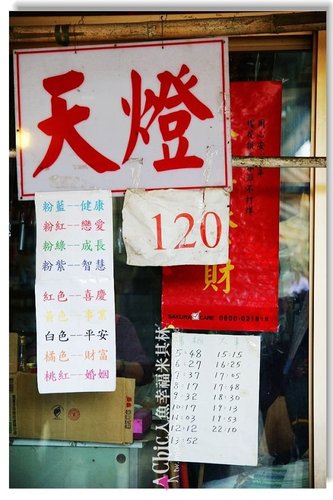 天燈
粉藍--健康
粉紅--戀愛
粉綠--成長
粉紫--智慧
紅色--喜慶
黃色--事業
白色--平安
橘色--財富
桃紅--婚姻
120
財
0800-021818
5:48 15:15
6:27 16:25
7:37 17:05
8:17 17:48
9:32 18:30
10:17 19:13
11:03 19:53
12:12 22:10
13:52
AChic人魚幸福米其杯